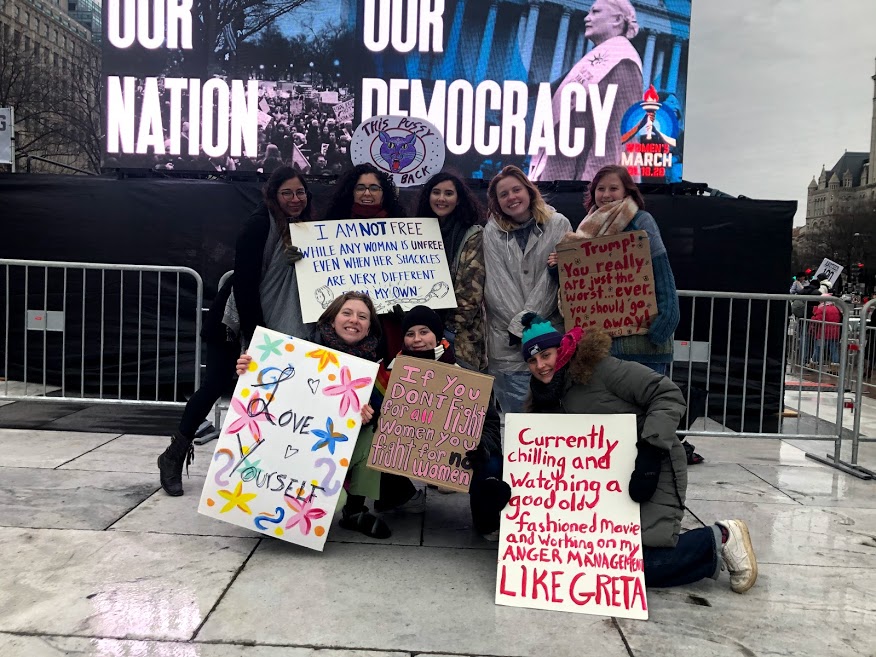 OUR
NATION
OUR
DEMOCRACY
WOMEN'S
MARCH
THIS PUSSY
BACK.
I AM NOT FREE
WHILE ANY WOMAN IS UNFREE
EVEN WHEN HER SHACKLES
ARE VERY DIFFERENT
FROM MY OWN
Trump!
You really
are just the
worst...ever.
you should go
far away!
Love
Yourself
If You
DON'T fight
for all
Women you
fight for no
women
Currently
chilling and
watching a
good old
fashioned Movie
and working on my
ANGER MANAGEMENT
LIKE GRETA